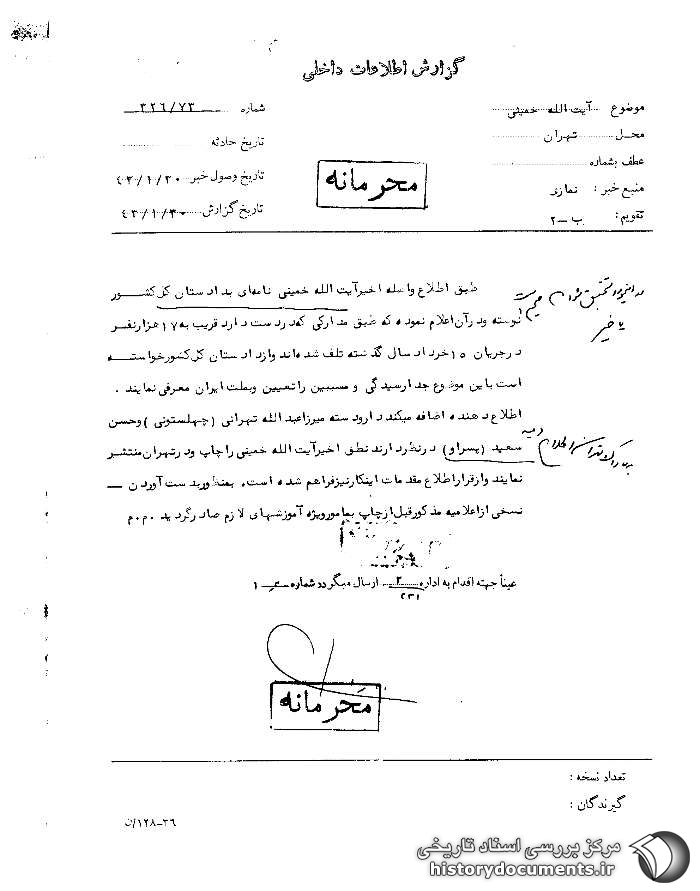 گزارش اطلاعات داخلی
موضوع آیت الله خمینی
محل تهران
عطف بشماره
منبع خبر : نمازی
تقویم : ب ـ ۲
شماره ۳۲۶/۷۳
تاریخ حادثه
تاریخ وصول خبر ۴۳/۱/۳۰
تاریخ گزارش ۴۳/۱/۳۰
محرمانه
طبق اطلاع واصله اخیرآیت الله خمینی نامه‌ای بدادستان کل کشور
نوشته ودرآن اعلام نموده که طبق مدارکی که دردست دارد قریب به ۱۷ هزارنفر
درجریان ۱۵ خرداد سال گذشته تلف شده‌اند وازدادستان کل کشورخواسته
است باین موضوع جدا رسیدگی و مسببین راتعیین وبملت ایران معرفی نمایند .
اطلاع دهنده اضافه میکند دارودسته میرزاعبدالله تهرانی (چهلستونی )وحسن
سعید (پسراو) درنظردارند نطق اخیرآیت الله خمینی راچاپ ودرتهران منتشر
نمایند وازقراراطلاع مقدمات اینکارنیزفراهم شده است . بمنظوربدست آوردن ـــ
نسخی ازاعلامیه مذکورقبل ازچاپ بمامورویژه آموزشهای لازم صادرگردید .م.م
عیناً جهته اقدام به اداره ۲ ارسال میگردد شماره ۱
۲۳۱
محرمانه
تعداد نسخه :
گیرندگان :
۱۲۸-۳۶/ن
مرکز بررسی اسناد تاریخی
historydocuments.ir